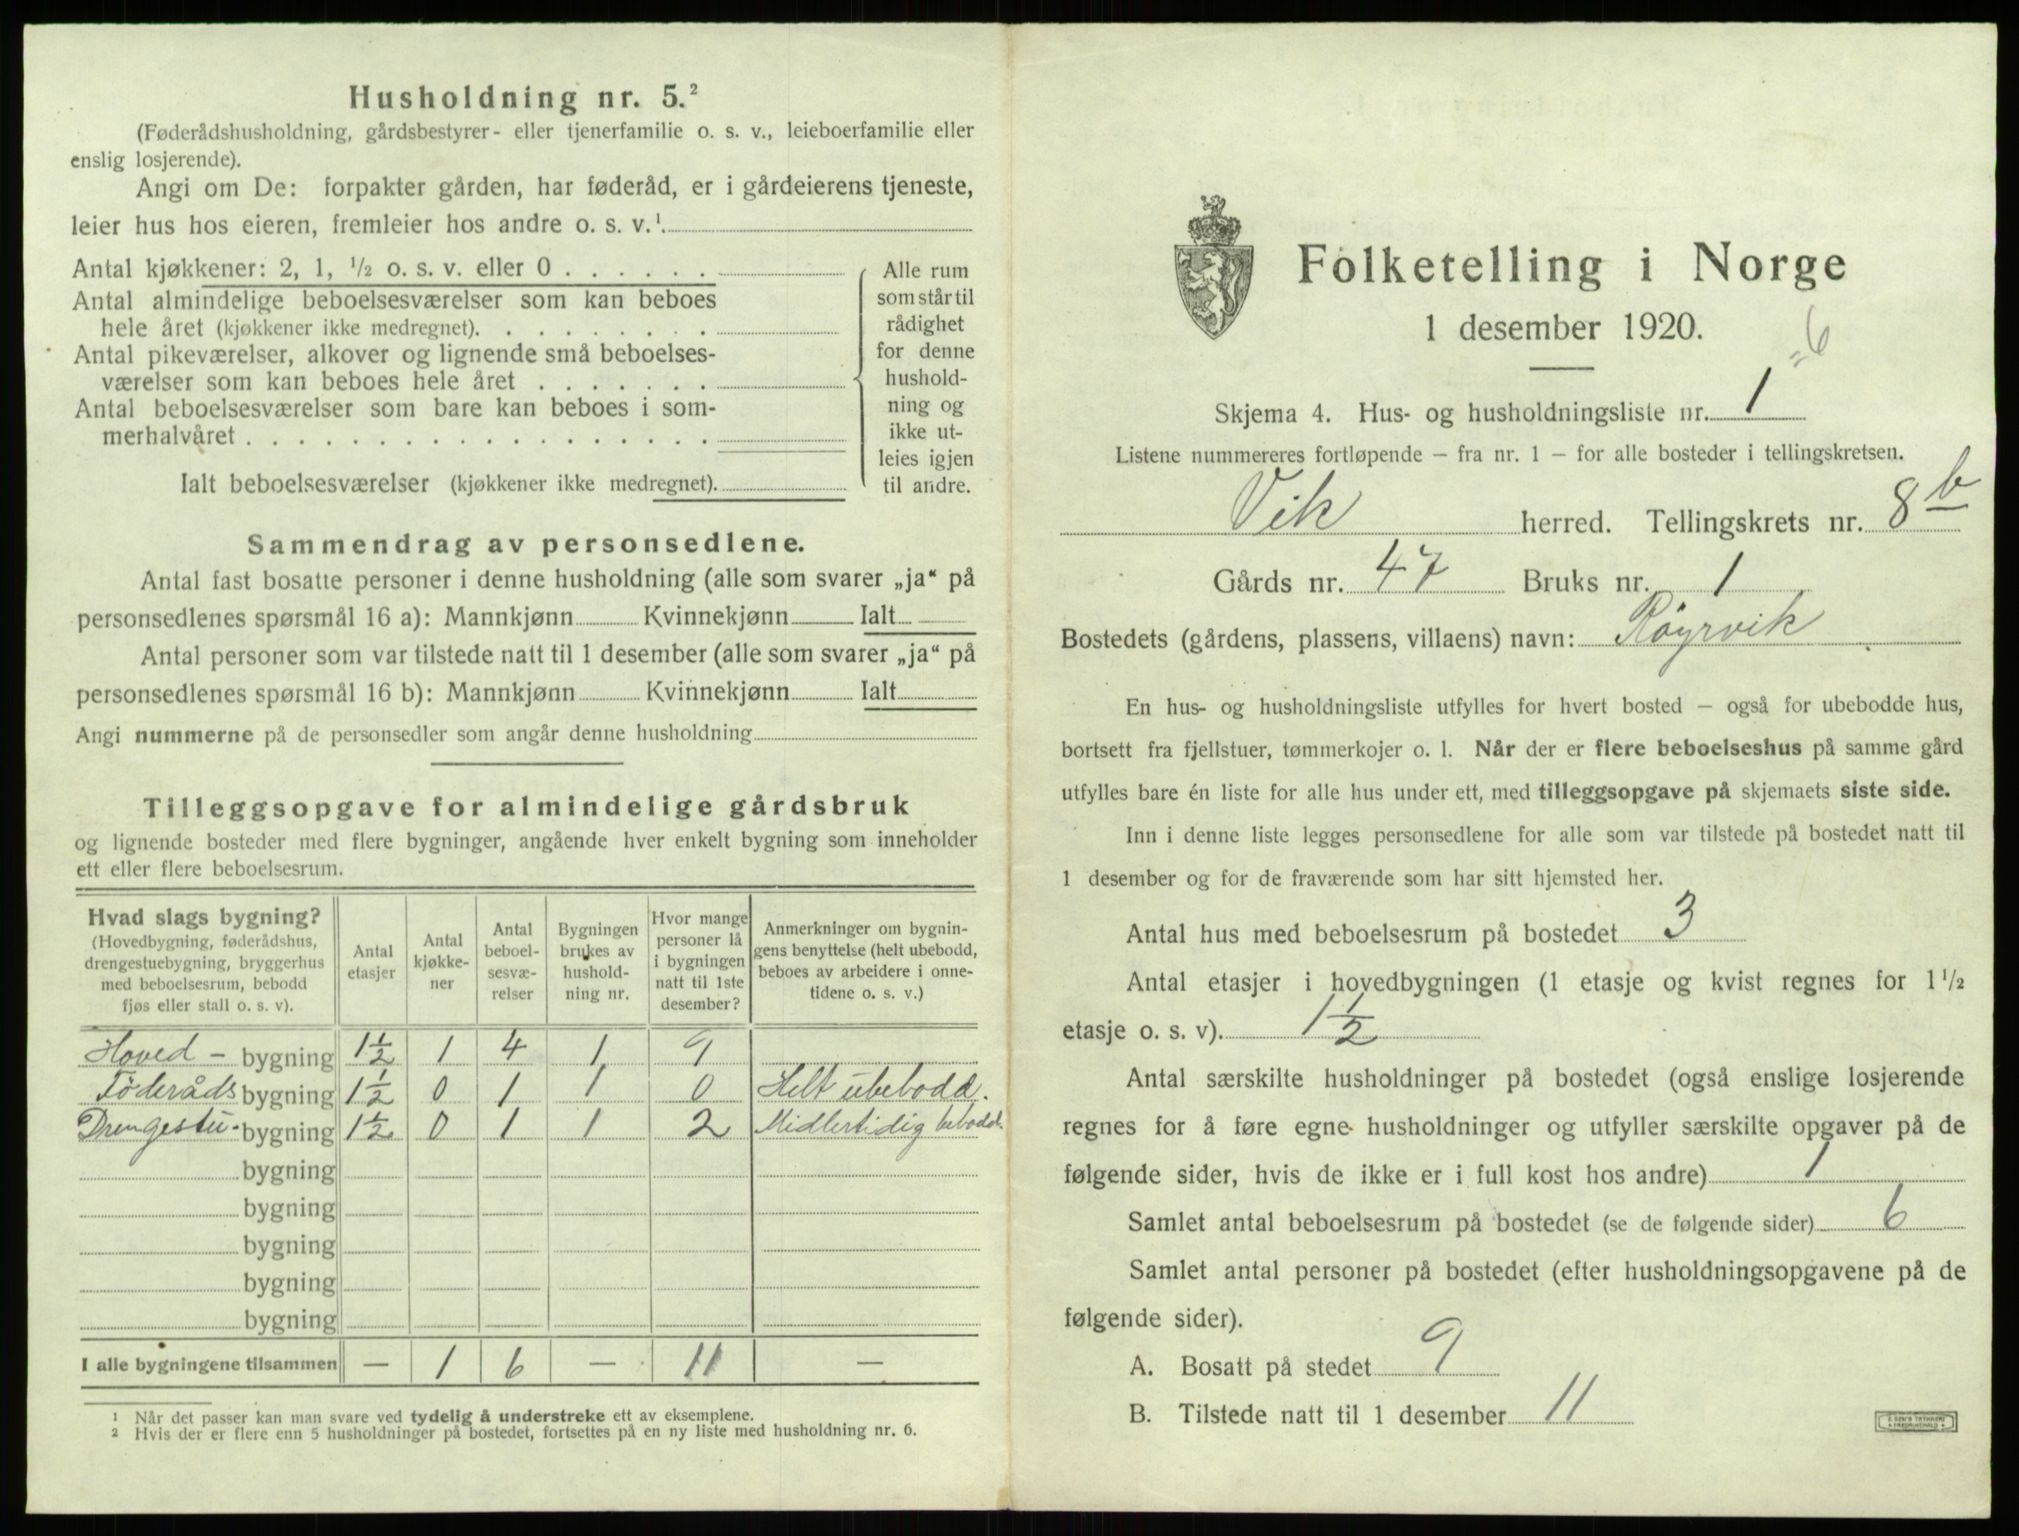 Husholdning nr. 5.²
(Føderådshusholdning, gårdsbestyrer- eller tjenerfamilie o. s. v., leieboerfamilie eller
enslig losjerende).
Angi om De: forpakter gården, har føderåd, er i gårdeierens tjeneste,
leier hus hos eieren, fremleier hos andre o. s. v.¹.
Antal kjøkkener: 2, 1, ½ o. s. v. eller 0 . . . . . .
Antal almindelige beboelsesværelser som kan beboes
hele året (kjøkkener ikke medregnet). . . . . . . . .
Antal pikeværelser, alkover og lignende små beboelses-
værelser som kan beboes hele året . . . . . . .
Antal beboelsesværelser som bare kan beboes i som-
merhalvåret . . . . . . . . . . . . . . . . . .
Ialt beboelsesværelser (kjøkkener ikke medregnet).
Alle rum
som står til
rådighet
for denne
hushold-
ning og
ikke ut-
leies igjen
til andre.
Sammendrag av personsedlene.
Antal fast bosatte personer i denne husholdning (alle som svarer „ja“ på
personsedlenes spørsmål 16 a): Mannkjønn Kvinnekjønn Ialt
Antal personer som var tilstede natt til 1 desember (alle som svarer „ja“ på
personsedlenes spørsmål 16 b): Mannkjønn Kvinnekjønn Ialt
Angi nummerne på de personsedler som angår denne husholdning
Tilleggsopgave for almindelige gårdsbruk
og lignende bosteder med flere bygninger, angående hver enkelt bygning som inneholder
ett eller flere beboelsesrum.
Hvad slags bygning?
(Hovedbygning, føderådshus,
drengestuebygning, bryggerhus
med beboelsesrum, bebodd
fjøs eller stall o. s. v).
Antal
etasjer
Antal
kjøkke-
ner
Antal
beboel-
sesvæ-
relser
Bygningen
brukes av
hushold-
ning nr.
Hvor mange
personer lå
i bygningen
natt til 1ste
desember?
Anmerkninger om bygnin-
gens benyttelse (helt ubebodd,
beboes av arbeidere i onne-
tidene o. s. v.)
Hoved - bygning 1½ 1 4 1 9
Föderåds bygning 1½ 0 1 1 0 Helt ubebodd.
Drengestu- bygning 1½ 0 1 1 2 Midlertidig bebodd.
bygning
bygning
bygning
bygning
bygning
I alle bygningene tilsammen — 1 6 — 11 —
¹ Når det passer kan man svare ved tydelig å understreke ett av eksemplene.
² Hvis der er flere enn 5 husholdninger på bostedet, fortsettes på en ny liste med husholdning nr. 6.
Folketelling i Norge
1 desember 1920.
= 6
Skjema 4. Hus- og husholdningsliste nr. 1
Listene nummereres fortløpende — fra nr. 1 — for alle bosteder i tellingskretsen.
Vik herred. Tellingskrets nr. 8 b
Gårds nr. 47 Bruks nr. 1
Bostedets (gårdens, plassens, villaens) navn: Röyrvik
En hus- og husholdningsliste utfylles for hvert bosted — også for ubebodde hus,
bortsett fra fjellstuer, tømmerkojer o. l. Når der er flere beboelseshus på samme gård
utfylles bare én liste for alle hus under ett, med tilleggsopgave på skjemaets siste side.
Inn i denne liste legges personsedlene for alle som var tilstede på bostedet natt til
1 desember og for de fraværende som har sitt hjemsted her.
Antal hus med beboelsesrum på bostedet 3
Antal etasjer i hovedbygningen (1 etasje og kvist regnes for 1½
etasje o. s. v). 1½
Antal særskilte husholdninger på bostedet (også enslige losjerende
regnes for å føre egne husholdninger og utfyller særskilte opgaver på de
følgende sider, hvis de ikke er i full kost hos andre) 1
Samlet antal beboelsesrum på bostedet (se de følgende sider) 6
Samlet antal personer på bostedet (efter husholdningsopgavene på de
følgende sider).
A. Bosatt på stedet 9
B. Tilstede natt til 1 desember 11